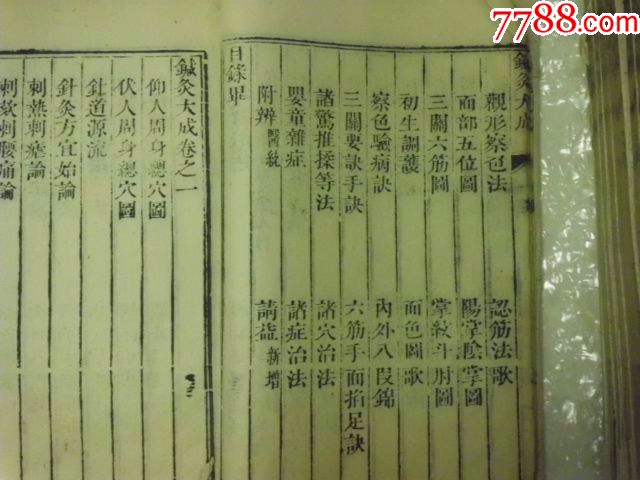 7788.com
鍼灸大成
觀形察色法 認筋法歌
面部五位圖 陽掌陰掌圖
三關六筋圖 掌紋斗肘圖
初生調護 面色圖歌
察色驗病訣 內外八段錦
三關要訣手訣 六筋手面掐足訣
諸驚推揉等法 諸穴治法
嬰童雜症 諸症治法
附辨醫統 請益新增
目錄畢
鍼灸大成卷之一
仰人周身總穴圖
伏人周身總穴圖
針道源流
針灸方宜始論
刺熱刺瘧論
刺欬刺腰痛論